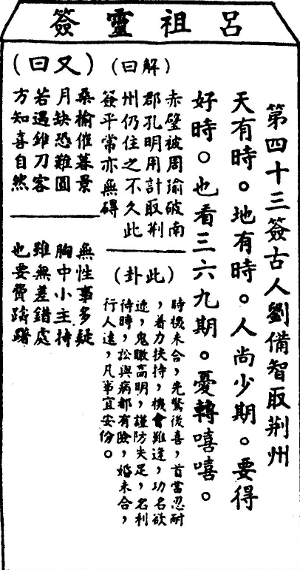 呂祖靈簽
第四十三簽古人劉備智取荆州
天有時。地有時。人尚少期。要得
好時。也看三六九期。憂轉嘻嘻。
(解曰)
赤壁被周瑜破南
郡孔明用計取荆
州仍住之不久此
簽平常亦無碍
(此卦)
時機未合,先驚後喜,首當忍耐
,着力扶持,機會難逢,功名欲
遂,鬼瞰高明,謹防失足,名利
待時,訟與病都有險,婚未合,
行人遠,凡事宜安份。
(又曰)
桑榆催暮景
月缺恐難圓
若遇錐刀客
方知喜自然
無性事多疑
胸中小主持
雖無差錯處
也要費躊躇